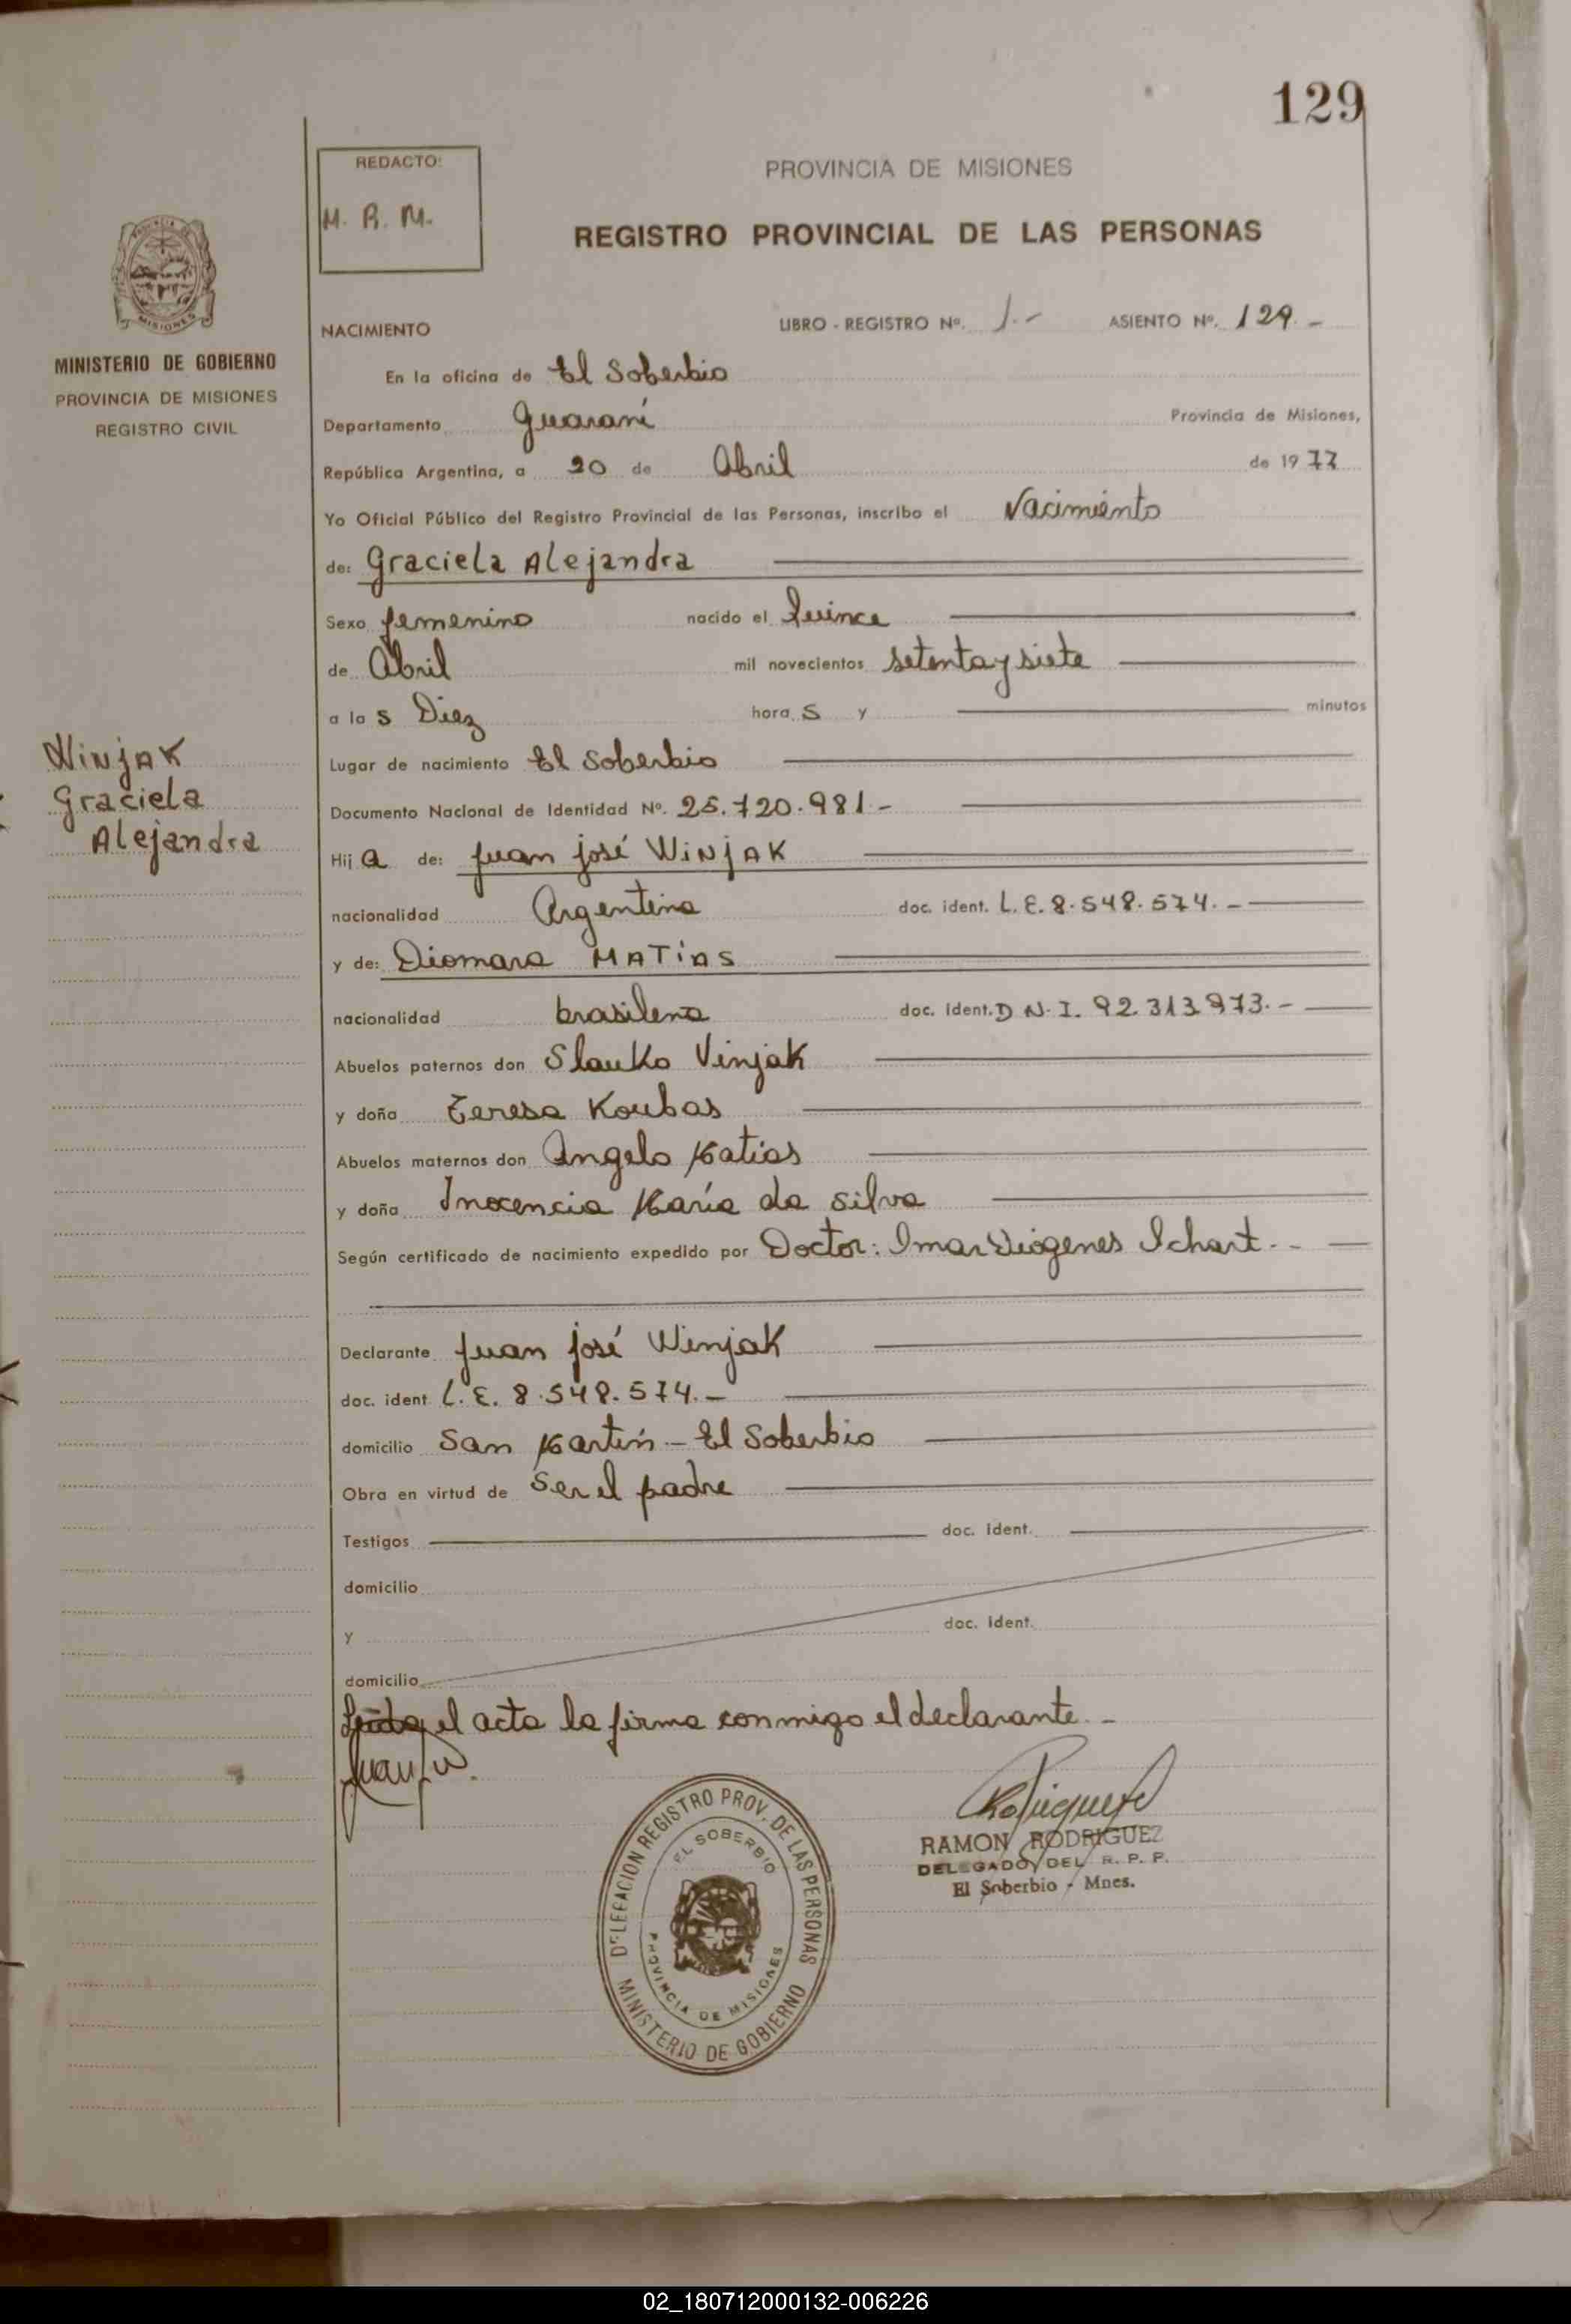 129
REDACTO:
M. R. M.
PROVINCIA DE MISIONES
REGISTRO PROVINCIAL DE LAS PERSONAS
MISIONES
MINISTERIO DE GOBIERNO
PROVINCIA DE MISIONES
REGISTRO CIVIL
NACIMIENTO LIBRO - REGISTRO Nº. 1.- ASIENTO Nº. 129.-
En la oficina de El Soberbio
Departamento Guaraní Provincia de Misiones,
República Argentina, a 20 de Abril de 1977
Yo Oficial Público del Registro Provincial de las Personas, inscribo el Nacimiento
de: Graciela Alejandra
Sexo femenino nacido el Quince
de Abril mil novecientos setenta y siete
a las Diez horas y minutos
Winjak
Graciela
Alejandra
Lugar de nacimiento El Soberbio
Documento Nacional de Identidad Nº. 25.720.981.-
Hija de: Juan José WiNjAK
nacionalidad Argentina doc. ident. L.E. 8.548.574.-
y de: Diomara MATíAS
nacionalidad brasilena doc. ident. D N.I. 92.313.973.-
Abuelos paternos don Slauko Vinjak
y doña Teresa Koubas
Abuelos maternos don Angelo Matias
y doña Inocencia María da silva
Según certificado de nacimiento expedido por Doctor: Imar Diógenes Ichart.-
Declarante Juan José Winjak
doc. ident L.E. 8.548.574.-
domicilio San Martín - El Soberbio
Obra en virtud de Ser el padre
Testigos doc. ident.
domicilio
y doc. ident.
domicilio
Leida el acta la firma conmigo el declarante.-
DELEGACION REGISTRO PROV. DE LAS PERSONAS
EL SOBERBIO
PROVINCIA DE MISIONES
MINISTERIO DE GOBIERNO
RAMON RODRIGUEZ
DELEGADO DEL R. P. P.
El Soberbio - Mnes.
02_180712000132-006226